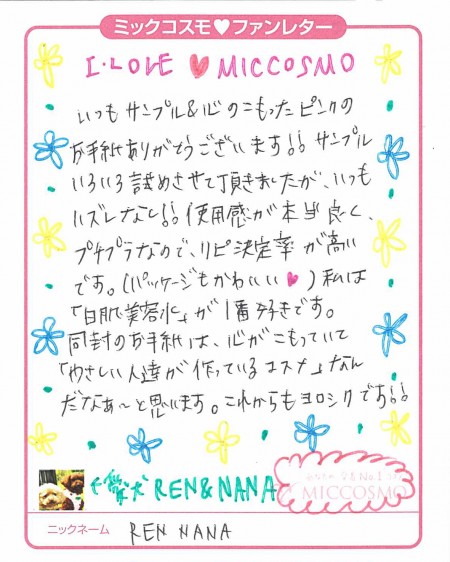 ミックコスモ♥ファンレター
I・LOVE ♥ MICCOSMO
いつもサンプル&心のこもったピンクの
お手紙ありがとうございます!! サンプル
いろいろ試めさせて頂きましたが、いつも
ハズレなし!! 使用感が本当良く、
プチプラなので、リピ決定率が高い
です。(パッケージもかわいい♥) 私は
「白肌美容水」が1番好きです。
同封のお手紙は、心がこもっていて
「やさしい人達が作っているコスメ」なん
だなぁ〜と思います。これからもヨロシクです!!
愛犬 REN&NANA
No.1
MICCOSMO
ニックネーム REN NANA